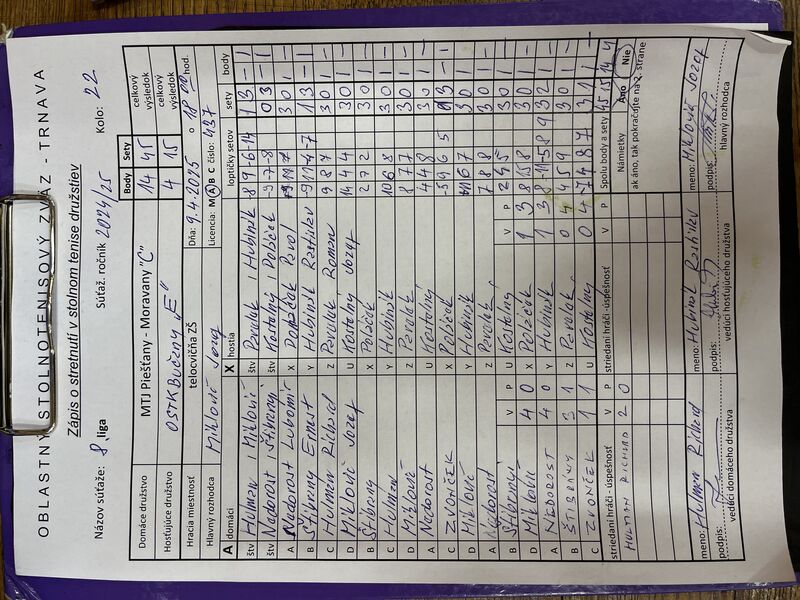 OBLASTNÝ STOLNOTENISOVÝ ZVÄZ - TRNAVA
Zápis o stretnutí v stolnom tenise družstiev
Názov súťaže: 8 liga Súťaž. ročník 2024/25 Kolo: 22
Body Sety
Domáce družstvo MTJ Piešťany - Moravany "C" 14 45 celkový výsledok
Hosťujúce družstvo OSTK Bučany „E" 4 15 celkový výsledok
Hracia miestnosť telocvičňa ZŠ Dňa: 9.4.2025 o 18 00 hod.
Hlavný rozhodca Miklovič Licencia: M A B C číslo: 437
A domáci X hostia loptičky setov sety body
štv Hulman / Miklovič štv Pavelek / Hubinik 8 9 -6 -14 1 3 - 1
štv Nadorost Štibraný štv Kostolný Polóček -9 -7 -8 0 3 - 1
A Nadorost Ľubomír X Pavol 3 0 1 -
B Štibraný Ernest Y Hubinik Rastislav 1 3 - 1
C Hulman Richard Z Pavelek Roman 9 8 7 3 0 1 -
D Miklovič Jozef U Kostolný Jozef 14 4 4 3 0 1 -
B Štibraný X Polóček 2 7 2 3 0 1 -
C Hulman Y Hubinik 10 6 8 3 0 1 -
D Miklovič Z Pavelek 8 7 7 3 0 1 -
A Nadorost U Kostolný 4 4 8 3 0 1 -
C Zvonček X Polóček -5 9 6 5 3 1 -
D Miklovič Y Hubinik 11 6 7 3 0 1 -
A Nadorost Z Pavelek 7 8 8 3 0 1 -
B Štibraný U Kostolný 2 9 5 3 0 1 -
V P V P
D Miklovič 4 0 X Polóček 1 3 3 0 1 -
A Nadorost 4 0 Y Hubinik 1 3 8 -11 -5 8 9 3 2 1 -
B Štibraný 3 1 Z Pavelek 0 4 4 5 9 3 0 1 -
C Zvonček 1 1 U Kostolný 0 4 -7 4 8 7 3 1 1 -
striedaní hráči - úspešnosť V P striedaní hráči - úspešnosť V P Spolu body a sety 45 15 14 4
Hulman Richard 2 0 Námietky Áno Nie
ak áno, tak pokračujte na 2. strane
meno: Hulman Richard meno: Hubinik Rastislav meno: Miklovič Jozef
podpis: podpis: podpis:
vedúci domáceho družstva vedúci hosťujúceho družstva hlavný rozhodca